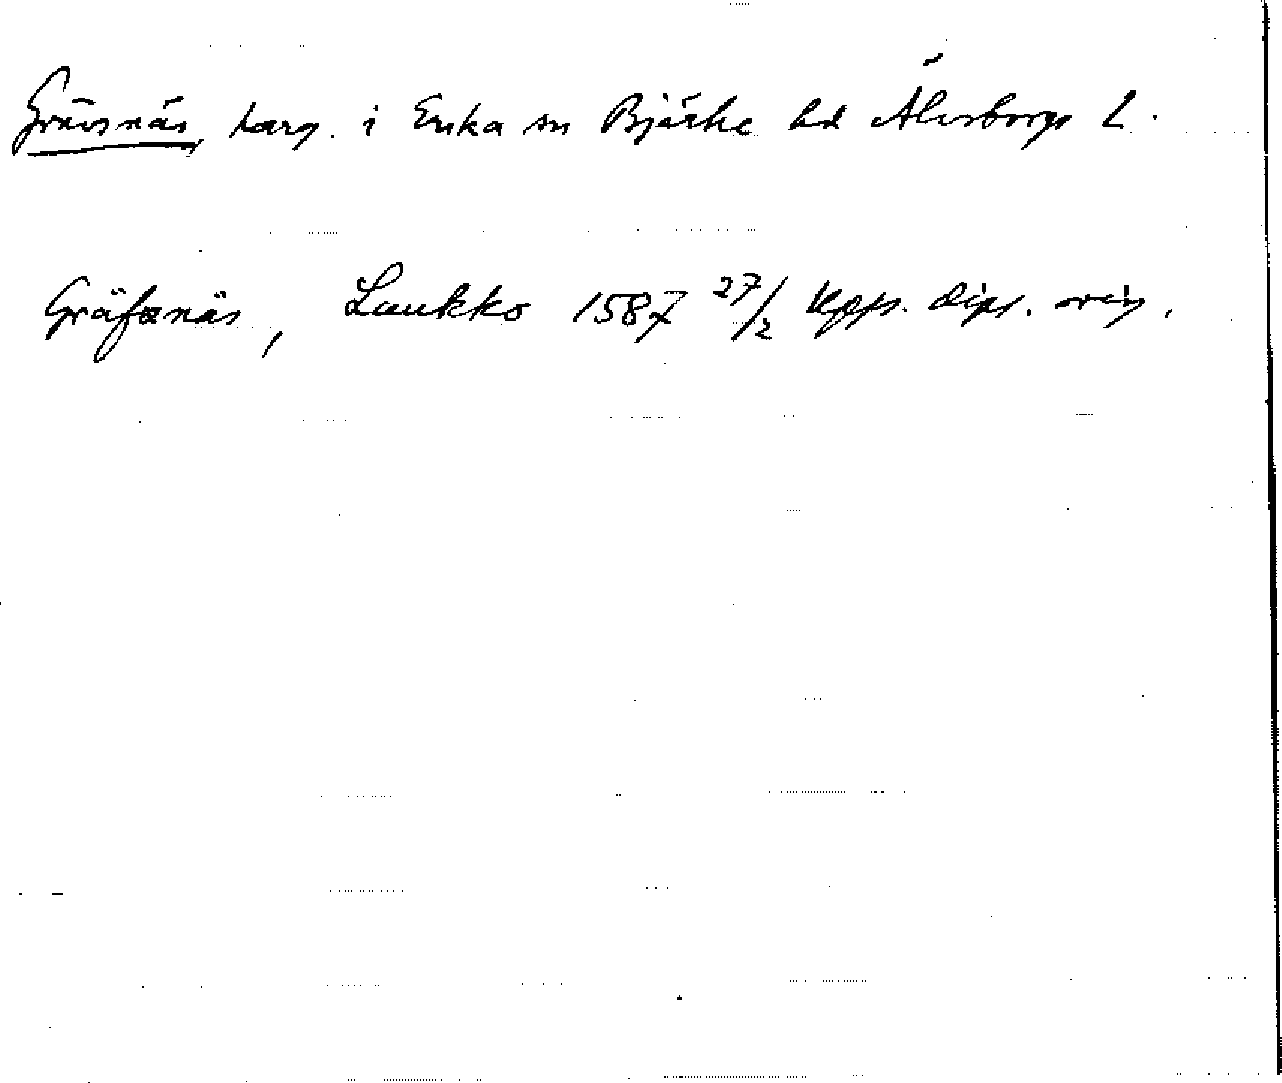 Gräsnäs, herg. i Erska sn Bjärke hd Älvsborgs l.
Gräfsnäs, Laukko 1587 27/2 Upps. dipl. orig.